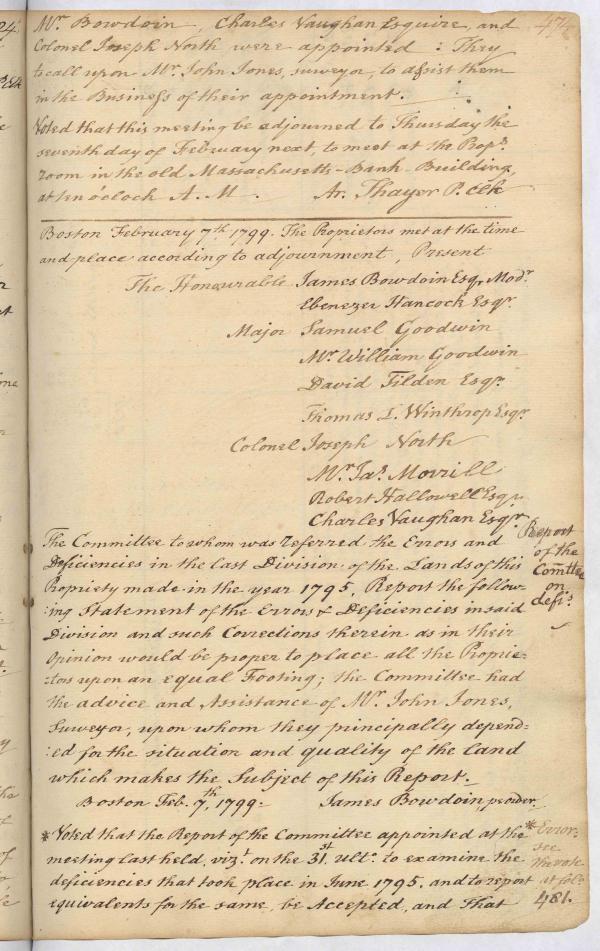 Mr. Bowdoin, Charles Vaughan Esquire, and
Colonel Joseph North were appointed : They
to call upon Mr. John Jones, surveyor, to assist them
in the Business of their appointment.
Voted that this meeting be adjourned to Thursday the
seventh day of February next, to meet at the Props.
room in the old Massachusetts-Bank-Building,
at ten o'clock A. M. Ar. Thayer P. Clk
Boston February 7th 1799. The Proprietors met at the time
and place according to adjournment, Present
The Honourable James Bowdoin Esq. Modr.
Ebenezer Hancock Esqr.
Major Samuel Goodwin
Mr. William Goodwin
David Tilden Esqr.
Thomas L. Winthrop Esqr.
Colonel Joseph North
Mr. Jas. Morrill
Robert Hallowell Esqr.
Charles Vaughan Esqr.
Report
of the
Comttee
on
defi's.
The Committee to whom was referred the Errors and
Deficiencies in the last Division of the Lands of this
Propriety made in the year 1795, Report the follow-
:ing Statement of the Errors & Deficiencies in said
Division and such Corrections therein as in their
Opinion would be proper to place all the Proprie-
:tors upon an equal Footing; the Committee had
the advice and Assistance of Mr. John Jones,
Surveyor, upon whom they principally depend=
:ed for the situation and quality of the land
which makes the Subject of this Report._
Boston Feb. 7th, 1799. James Bowdoin per order.
*Voted that the Report of the Committee appointed at the
meeting last held, vizt. on the 31st ulto. to examine the
deficiencies that took place in June 1795, and to report
equivalents for the same, be Accepted, and That
*Error
see
the vote
at fol.
481.